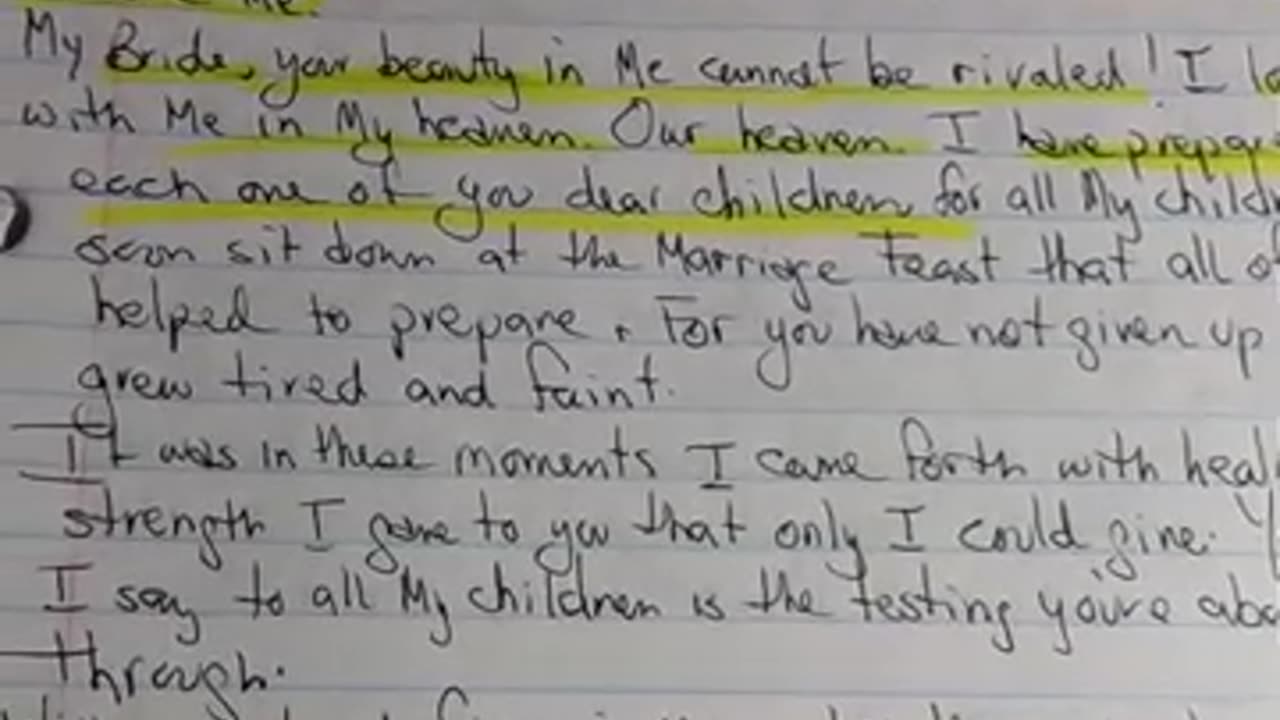 Me.
My Bride, your beauty in Me cannot be rivaled! I
with Me in My heaven. Our heaven. I have
each one of you dear children for all My
soon sit down at the Marriage Feast that all
helped to prepare. For you have not given up
grew tired and faint.
It was in these moments I came forth with
strength I gave to you that only I could give.
I say to all My children is the testing you're
through.